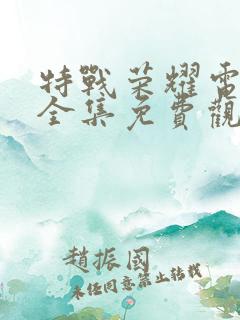 特戰荣耀電
全集免費觀
趙振國
未任同意禁止转载